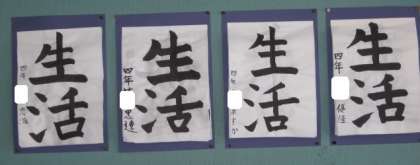 生活
四年
生活
四年
生活
四年
生活
四年